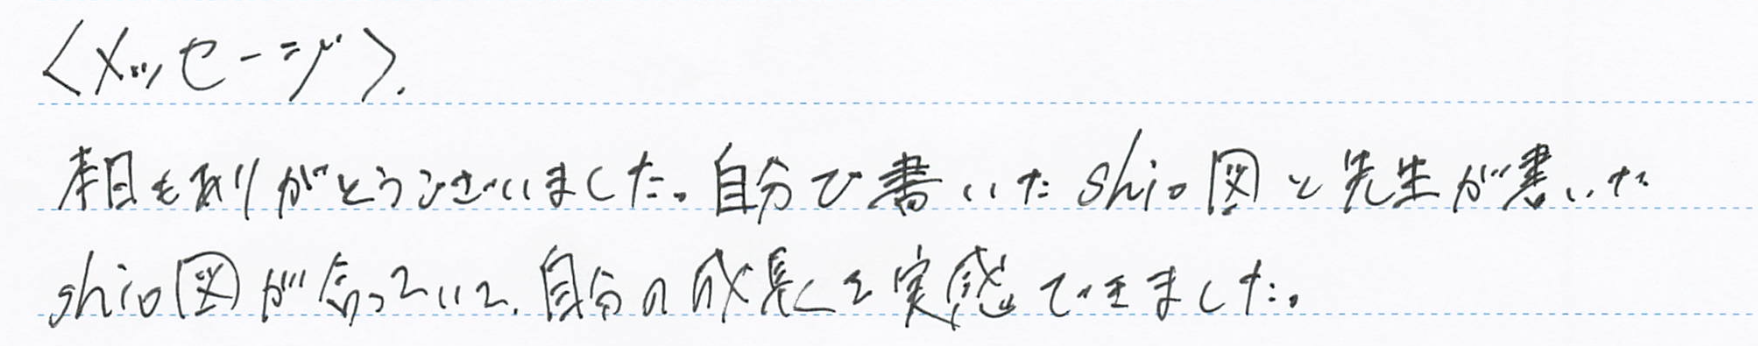 <メッセージ>.
本日もありがとうございました。自分で書いたshio図と先生が書いた
shio図が合っていて、自分の成長を実感できました。